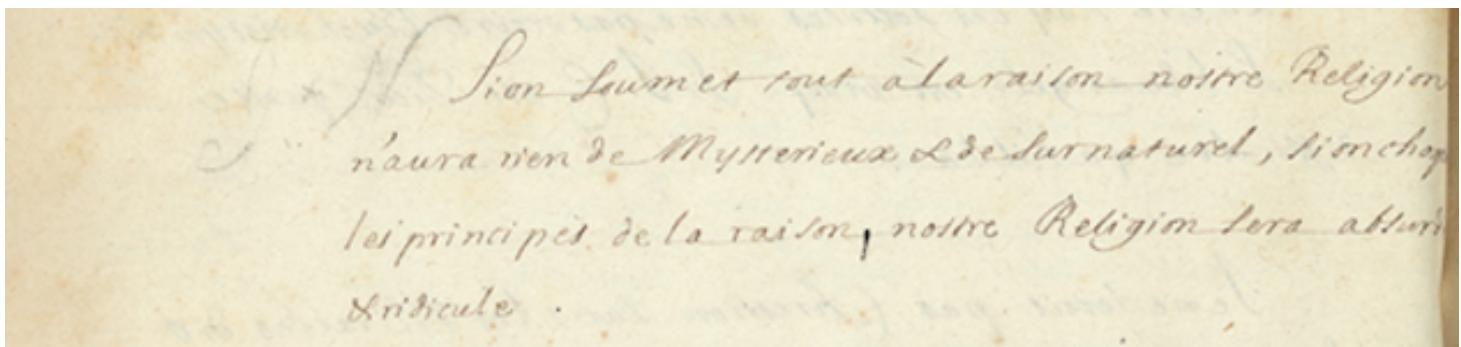 Si on soumet tout à la raison nostre Religion
n'aura rien de Mysterieux & de surnaturel, si on
les principes de la raison, nostre Religion sera
& ridicule.